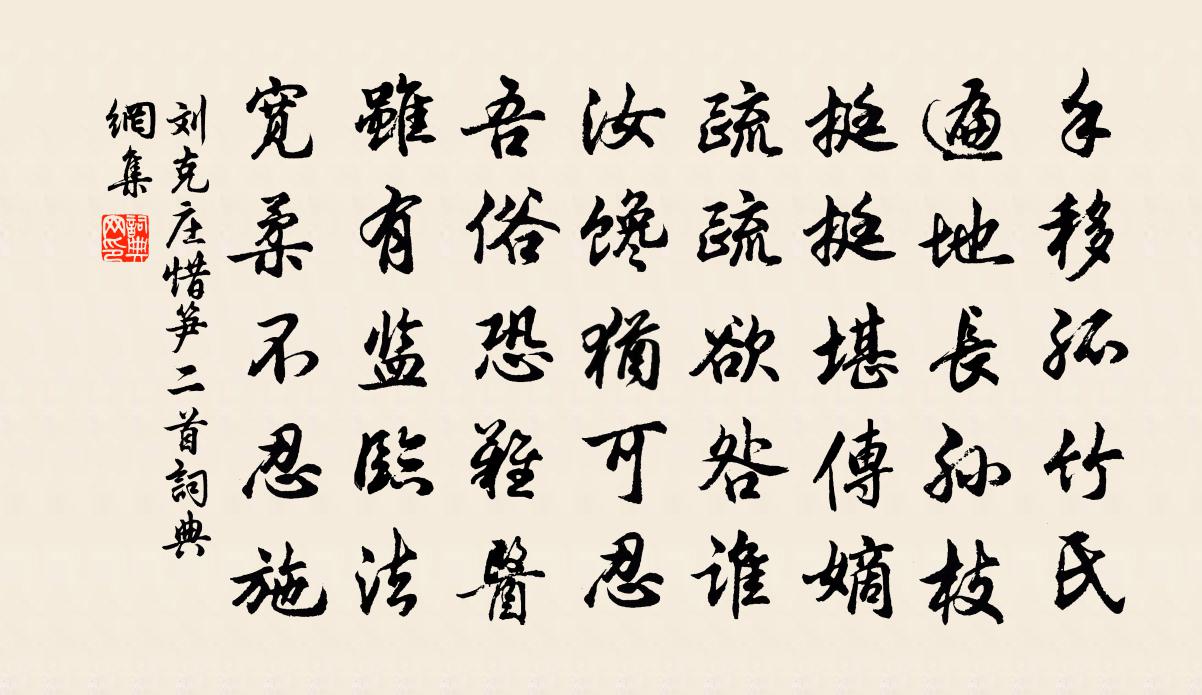 手移孤竹氏
遍地長孙枝
挺挺堪傳嫡
疏疏欲咎谁
汝馋猶可忍
吾俗恐難醫
雖有监臨法
寬柔不忍施
刘克庄惜笋二首詞典
網集
詞典
网印